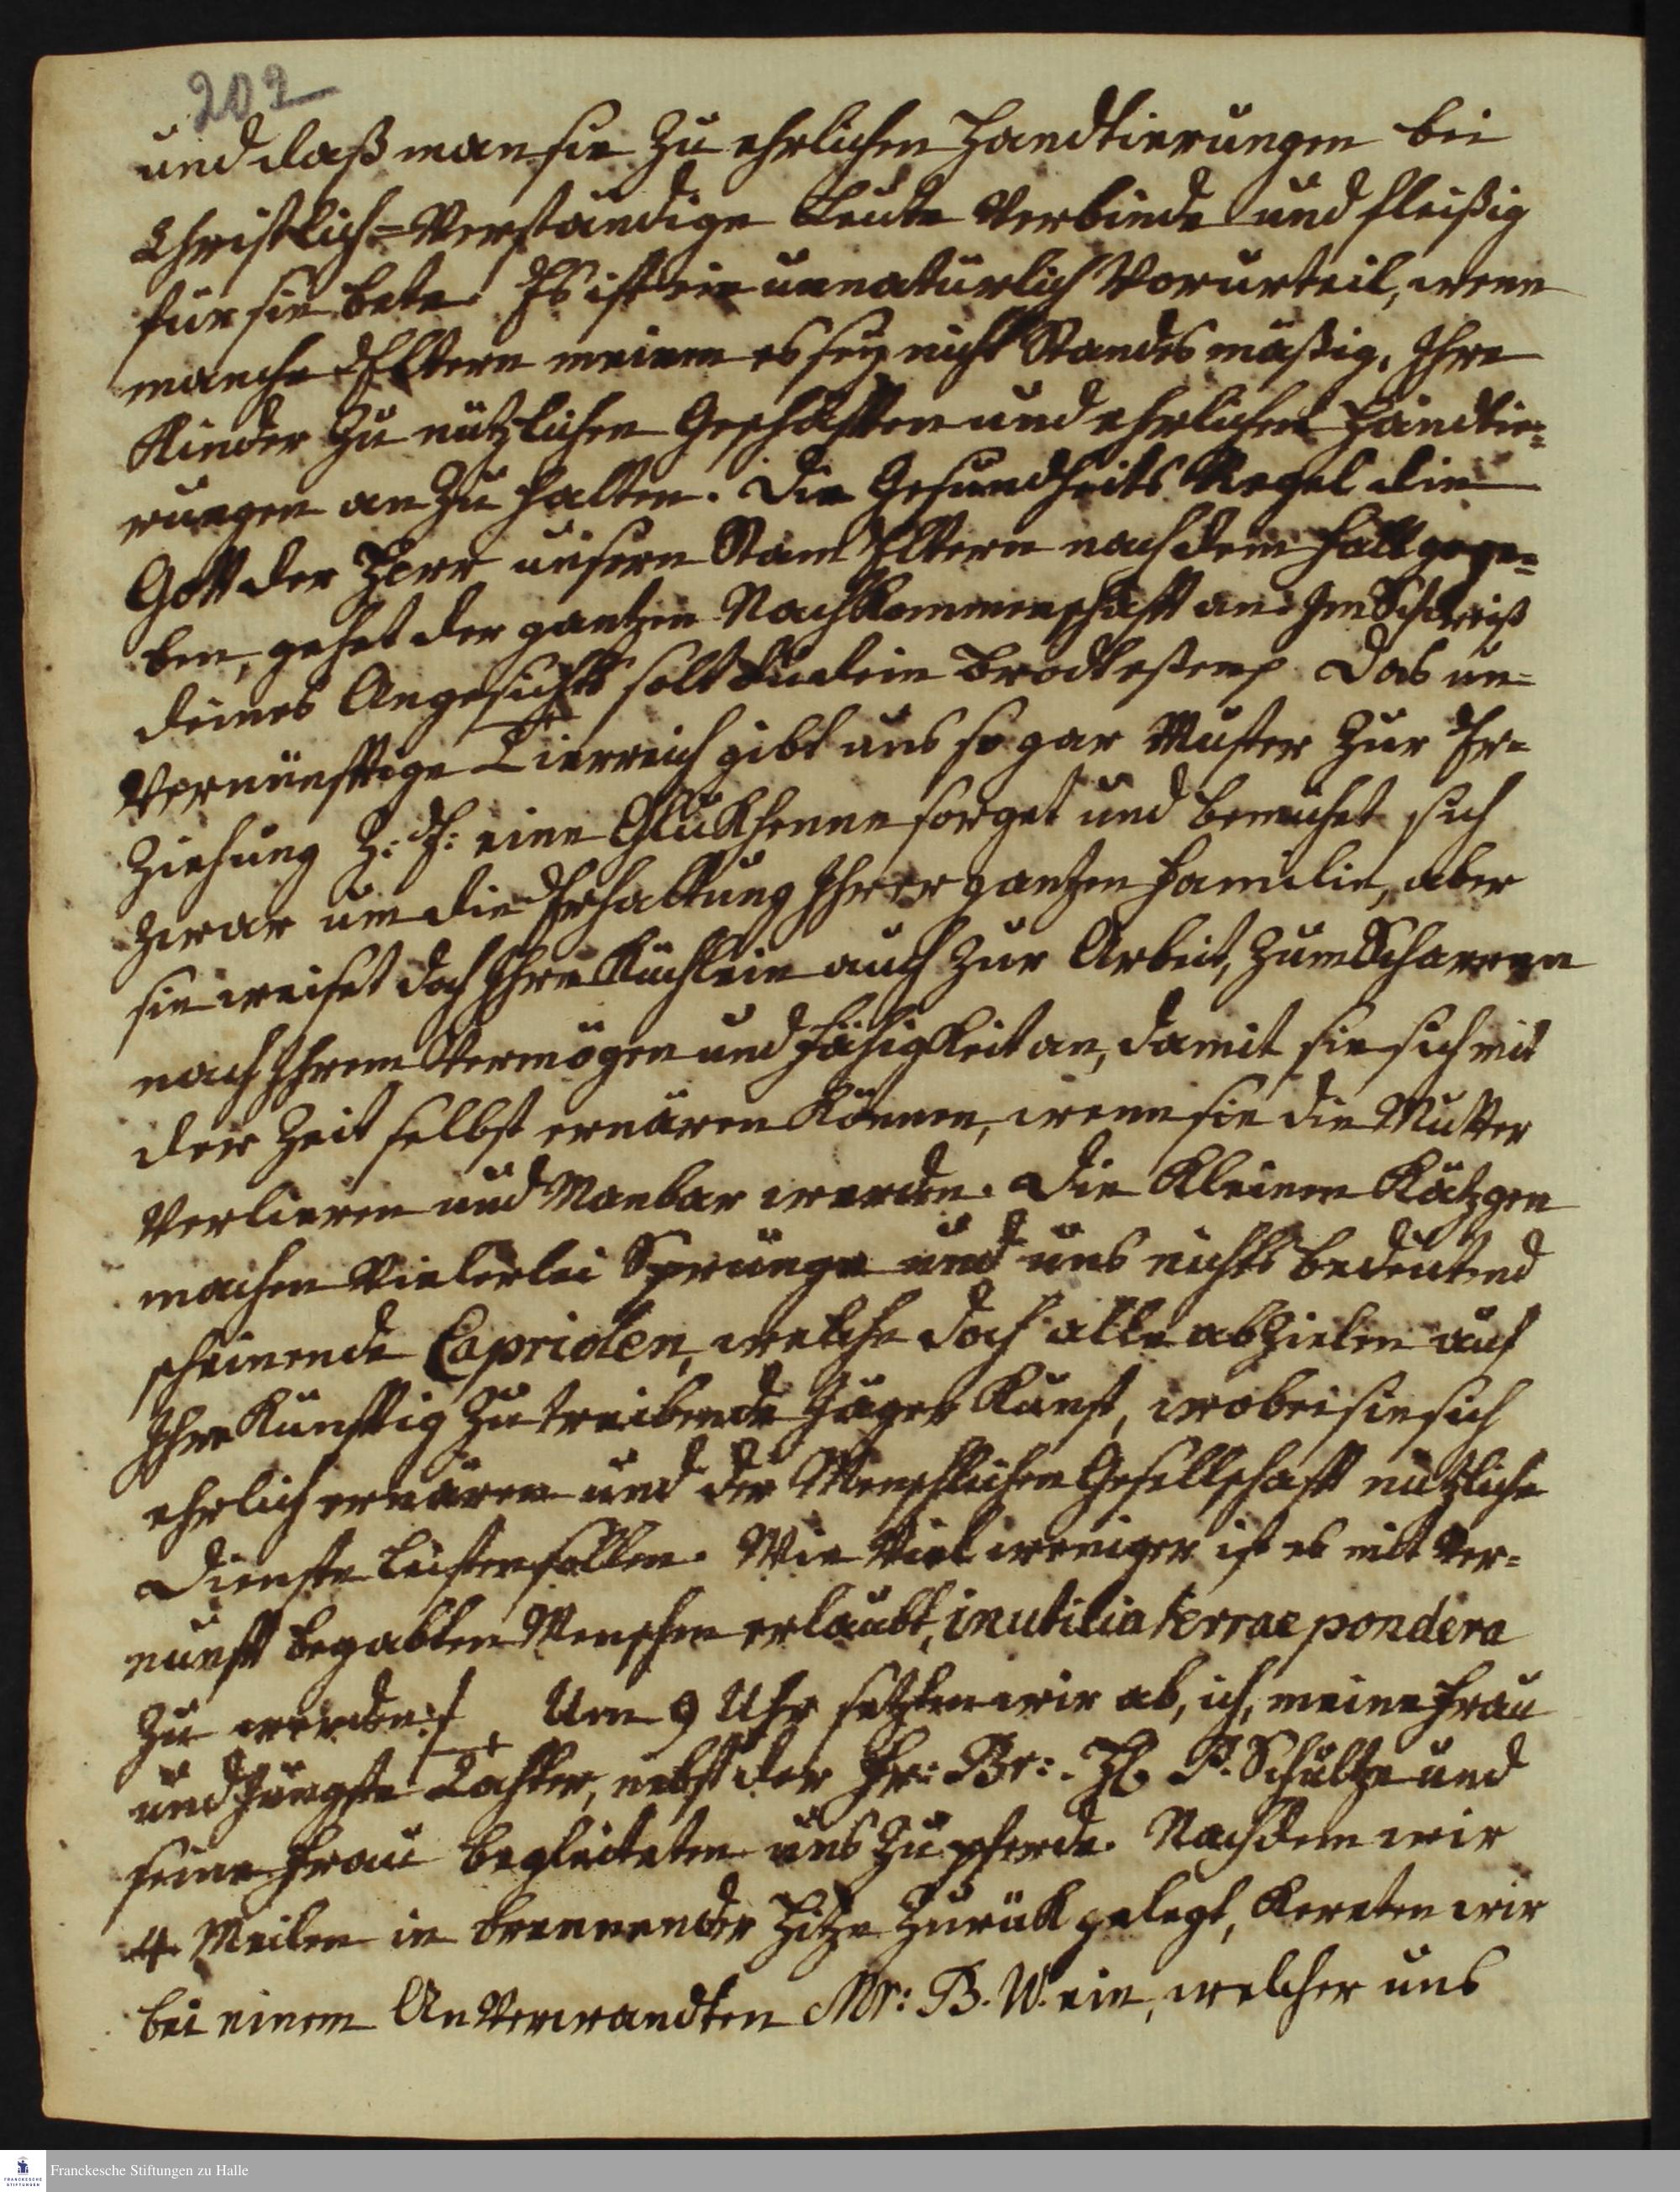 202
und daß man sie zu ehrlichen Handtierungen bei
Christlich=Verständige Leute Verbinde und fleißig
für sie bete. Es ist ein unnatürlich Vorurteil, wenn
manche Eltern meinen es seÿ nicht Standesmäßig, Ihre
Kinder zu nützlichen Geschäften und ehrlichen Handtie=
rungen an zu halten. Die Gesundheits Regel die
Gott der Herr unsern Stam Eltern nach dem Fall gege=
ben, gehet der gantzen Nachkommenschaft an: Im Schweiß
deines Angesichts solt du dein Brodt eßen. Das un=
Vernünftige Tierreich gibt uns so gar Muster zur Er=
ziehung z: E: eine Glukhenne sorget und bemühet sich
zwar um die Erhaltung Ihrer gantzen Familie, aber
sie weiset doch Ihre Küchlein auch zur Arbeit, zum Scharren
nach Ihrem Vermögen und Fähigkeit an, damit sie sich mit
der Zeit selbst ernären können, wenn sie die Mutter
Verlieren und Manbar werden. Die Kleinen Kätzgen
machen Vielerlei Sprünge und uns nichts bedeutend
scheinende Capriolen, welche doch alle abzielen auf
Ihre künftig zu treibende Jäger Kunst, wobei sie sich
ehrlich ernären und der Menschlichen Gesellschaft nützliche
Dienste leisten sollen. Wie Viel weniger ist es mit Ver=
nunft begabten Menschen erlaubt, inutilia terrae pondera
zu werden! Um 9 Uhr setzten wir ab, ich, meine Frau
und Jüngste Tochter, nebst der Fr: Br: H. P. Schultze und
seine Frau begleiteten uns zu pferde. Nachdem wir
4. Meilen in brennender Hitze zurük gelegt, kereten wir
bei einem AnVerwandten Mr: B. W. ein, welcher uns
FRANCKESCHE STIFTUNGEN
Franckesche Stiftungen zu Halle